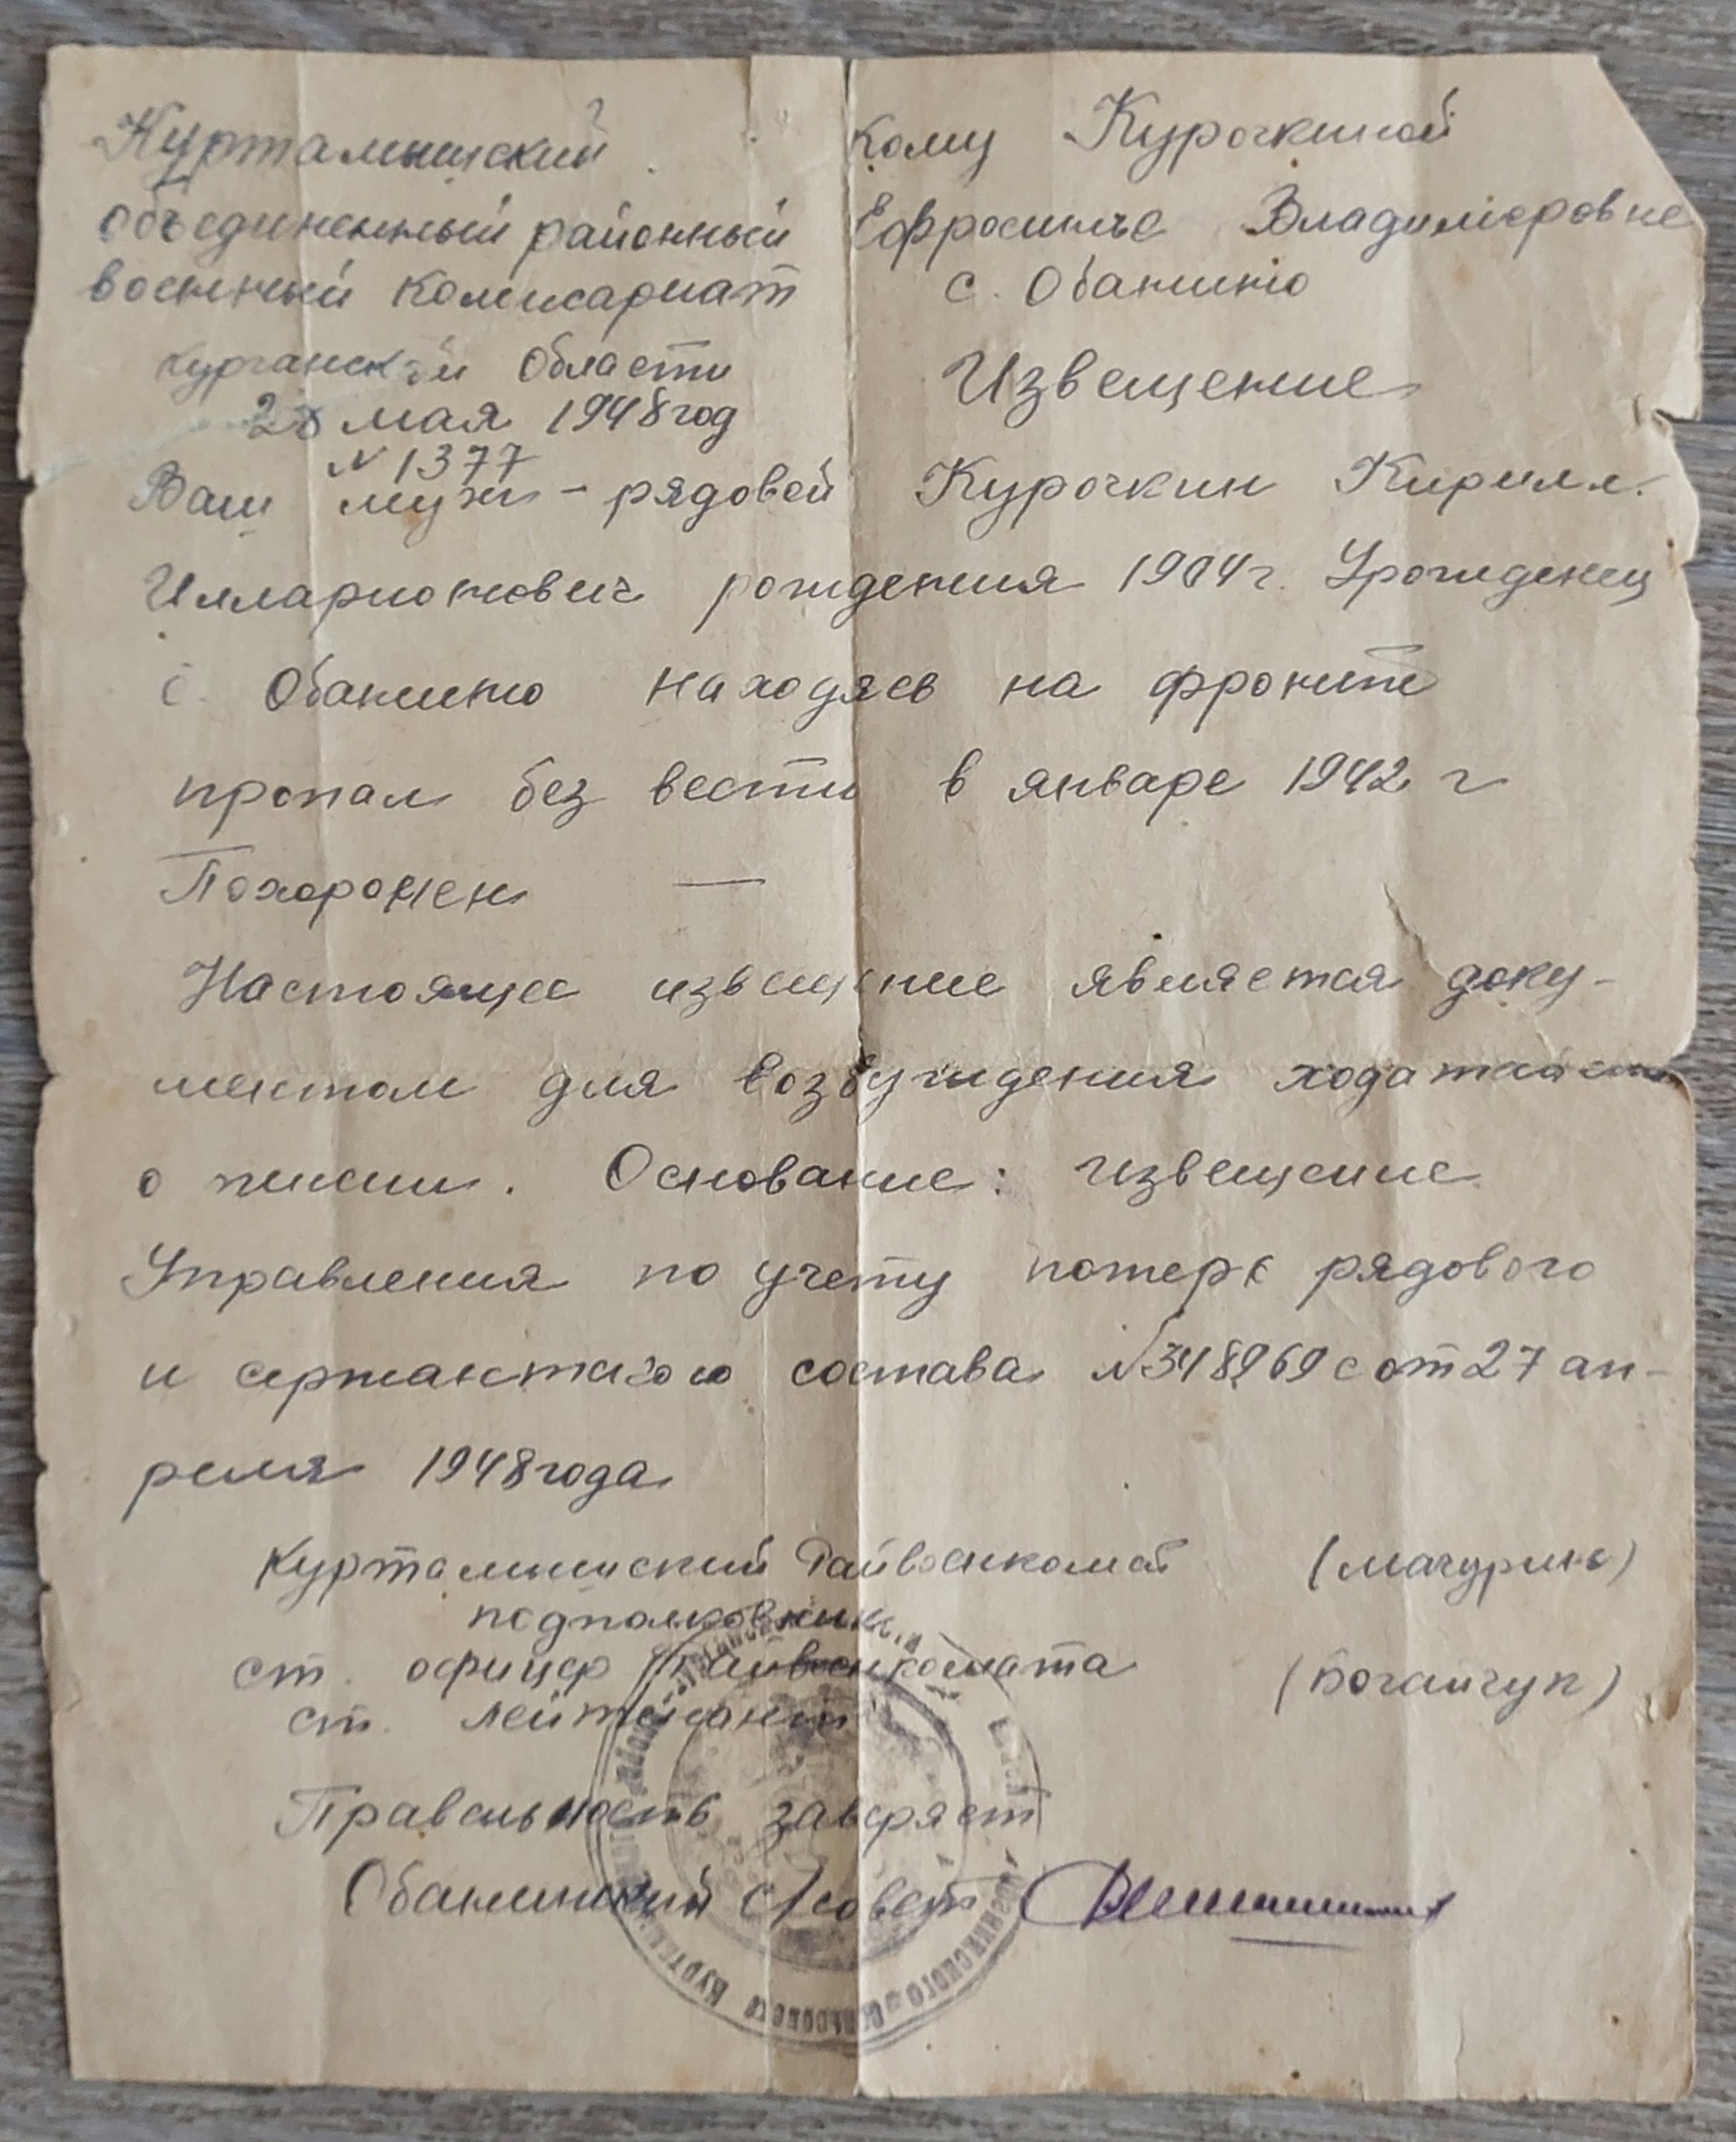 Куртамышский
объединенный районный
военный комисариат
курганской области
28 мая 1948 год
N 1377
Кому Курочкиной
Ефросинье Владимировне
с. Обанино
Извещение
Ваш муж - рядовой Курочкин Кирилл.
Илларионович рождения 1904 г. Урожденец
с. Обанино находясь на фронте
пропал без вести в январе 1942 г
Похоронен —
Настоящее извещение является доку-
ментом для возбуждения ходатайств
о пенсии. Основание: извещение
Управления по учету потерь рядового
и сержантского состава N 348969с от 27 ап-
реля 1948 года
Куртамышский Райвоенкомат (мачурин)
подполковник
ст. офицер райвоенкомата (Богайчук)
ст. лейтенант
Правельность заверяет
Обанинский с/совет